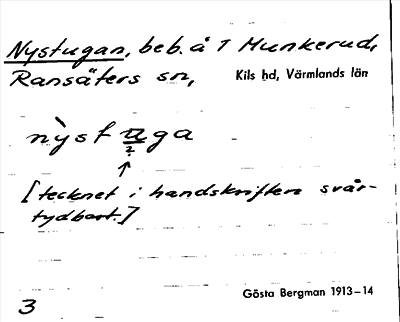 Nystugan, beb. å T Munkerud,
Ransäters sn, Kils hd, Värmlands län
ny̆st uga
?
↑
[tecknet i handskriften svår-
tydbart.]
Gösta Bergman 1913–14
3